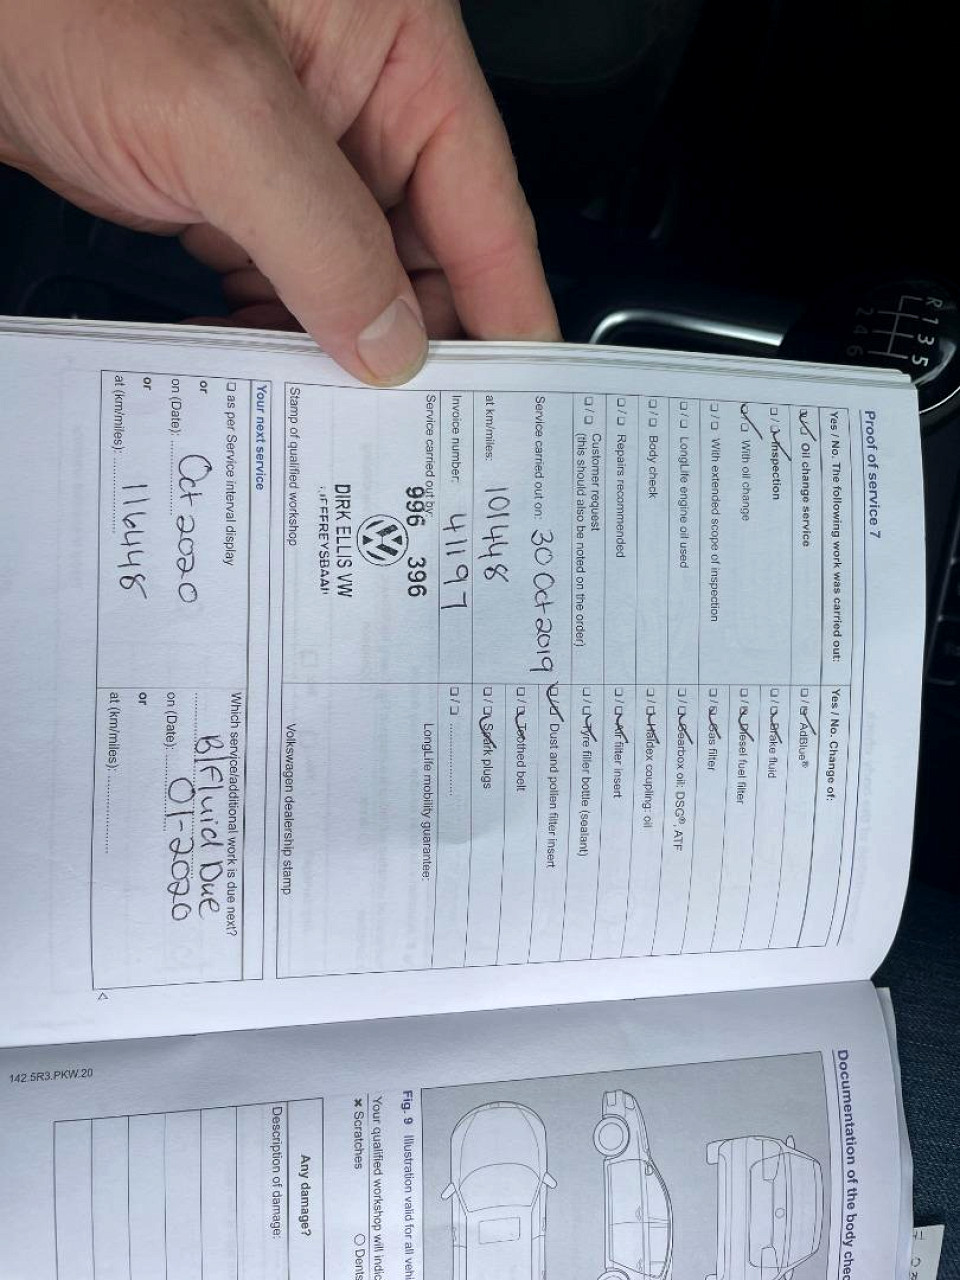 Proof of service 7
Yes / No. The following work was carried out:
☐/☐ Oil change service
☐/☐ Inspection
☐/☐ With oil change
☐/☐ With extended scope of inspection
☐/☐ LongLife engine oil used
☐/☐ Body check
☐/☐ Repairs recommended
☐/☐ Customer request
(this should also be noted on the order)
Service carried out on: 30 Oct 2019
at km/miles: 101448
Invoice number: 41197
Service carried out by:
996 396
DIRK ELLIS VW
Stamp of qualified workshop
Yes / No. Change of:
☐/☐ AdBlue®
☐/☐ Brake fluid
☐/☐ Diesel fuel filter
☐/☐ Gas filter
☐/☐ Gearbox oil: DSG®, ATF
☐/☐ Haldex coupling: oil
☐/☐ Air filter insert
☐/☐ Tyre filler bottle (sealant)
☐/☐ Dust and pollen filter insert
☐/☐ Toothed belt
☐/☐ Spark plugs
☐/☐ ....................
LongLife mobility guarantee:
Volkswagen dealership stamp
Your next service
☐ as per Service interval display
or
on (Date): Oct 2020
or
at (km/miles): 116448
Which service/additional work is due next?
B/Fluid Due
on (Date): 01-2020
or
at (km/miles): ....................
142.5R3.PKW.20
Documentation of the body
Fig. 9 Illustration valid for all
Your qualified workshop will
× Scratches
○ Dents
Any damage?
Description of damage:
R 1 3 5
2 4 6